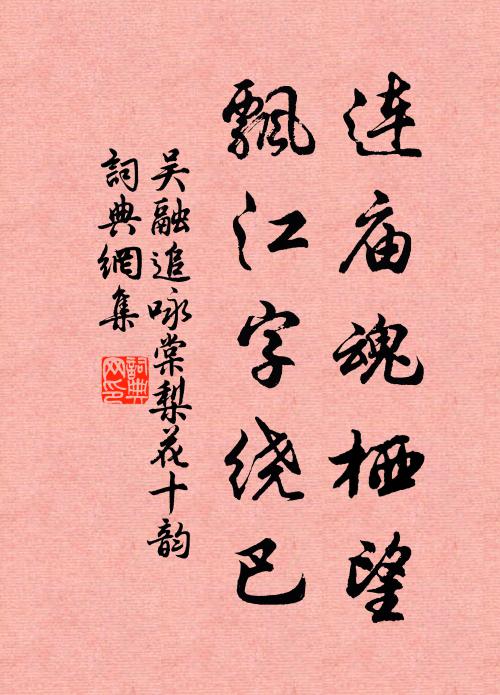 连庙魂栖望
飘江字绕巴
吴融追咏棠梨花十韵
詞典網集
詞典网印